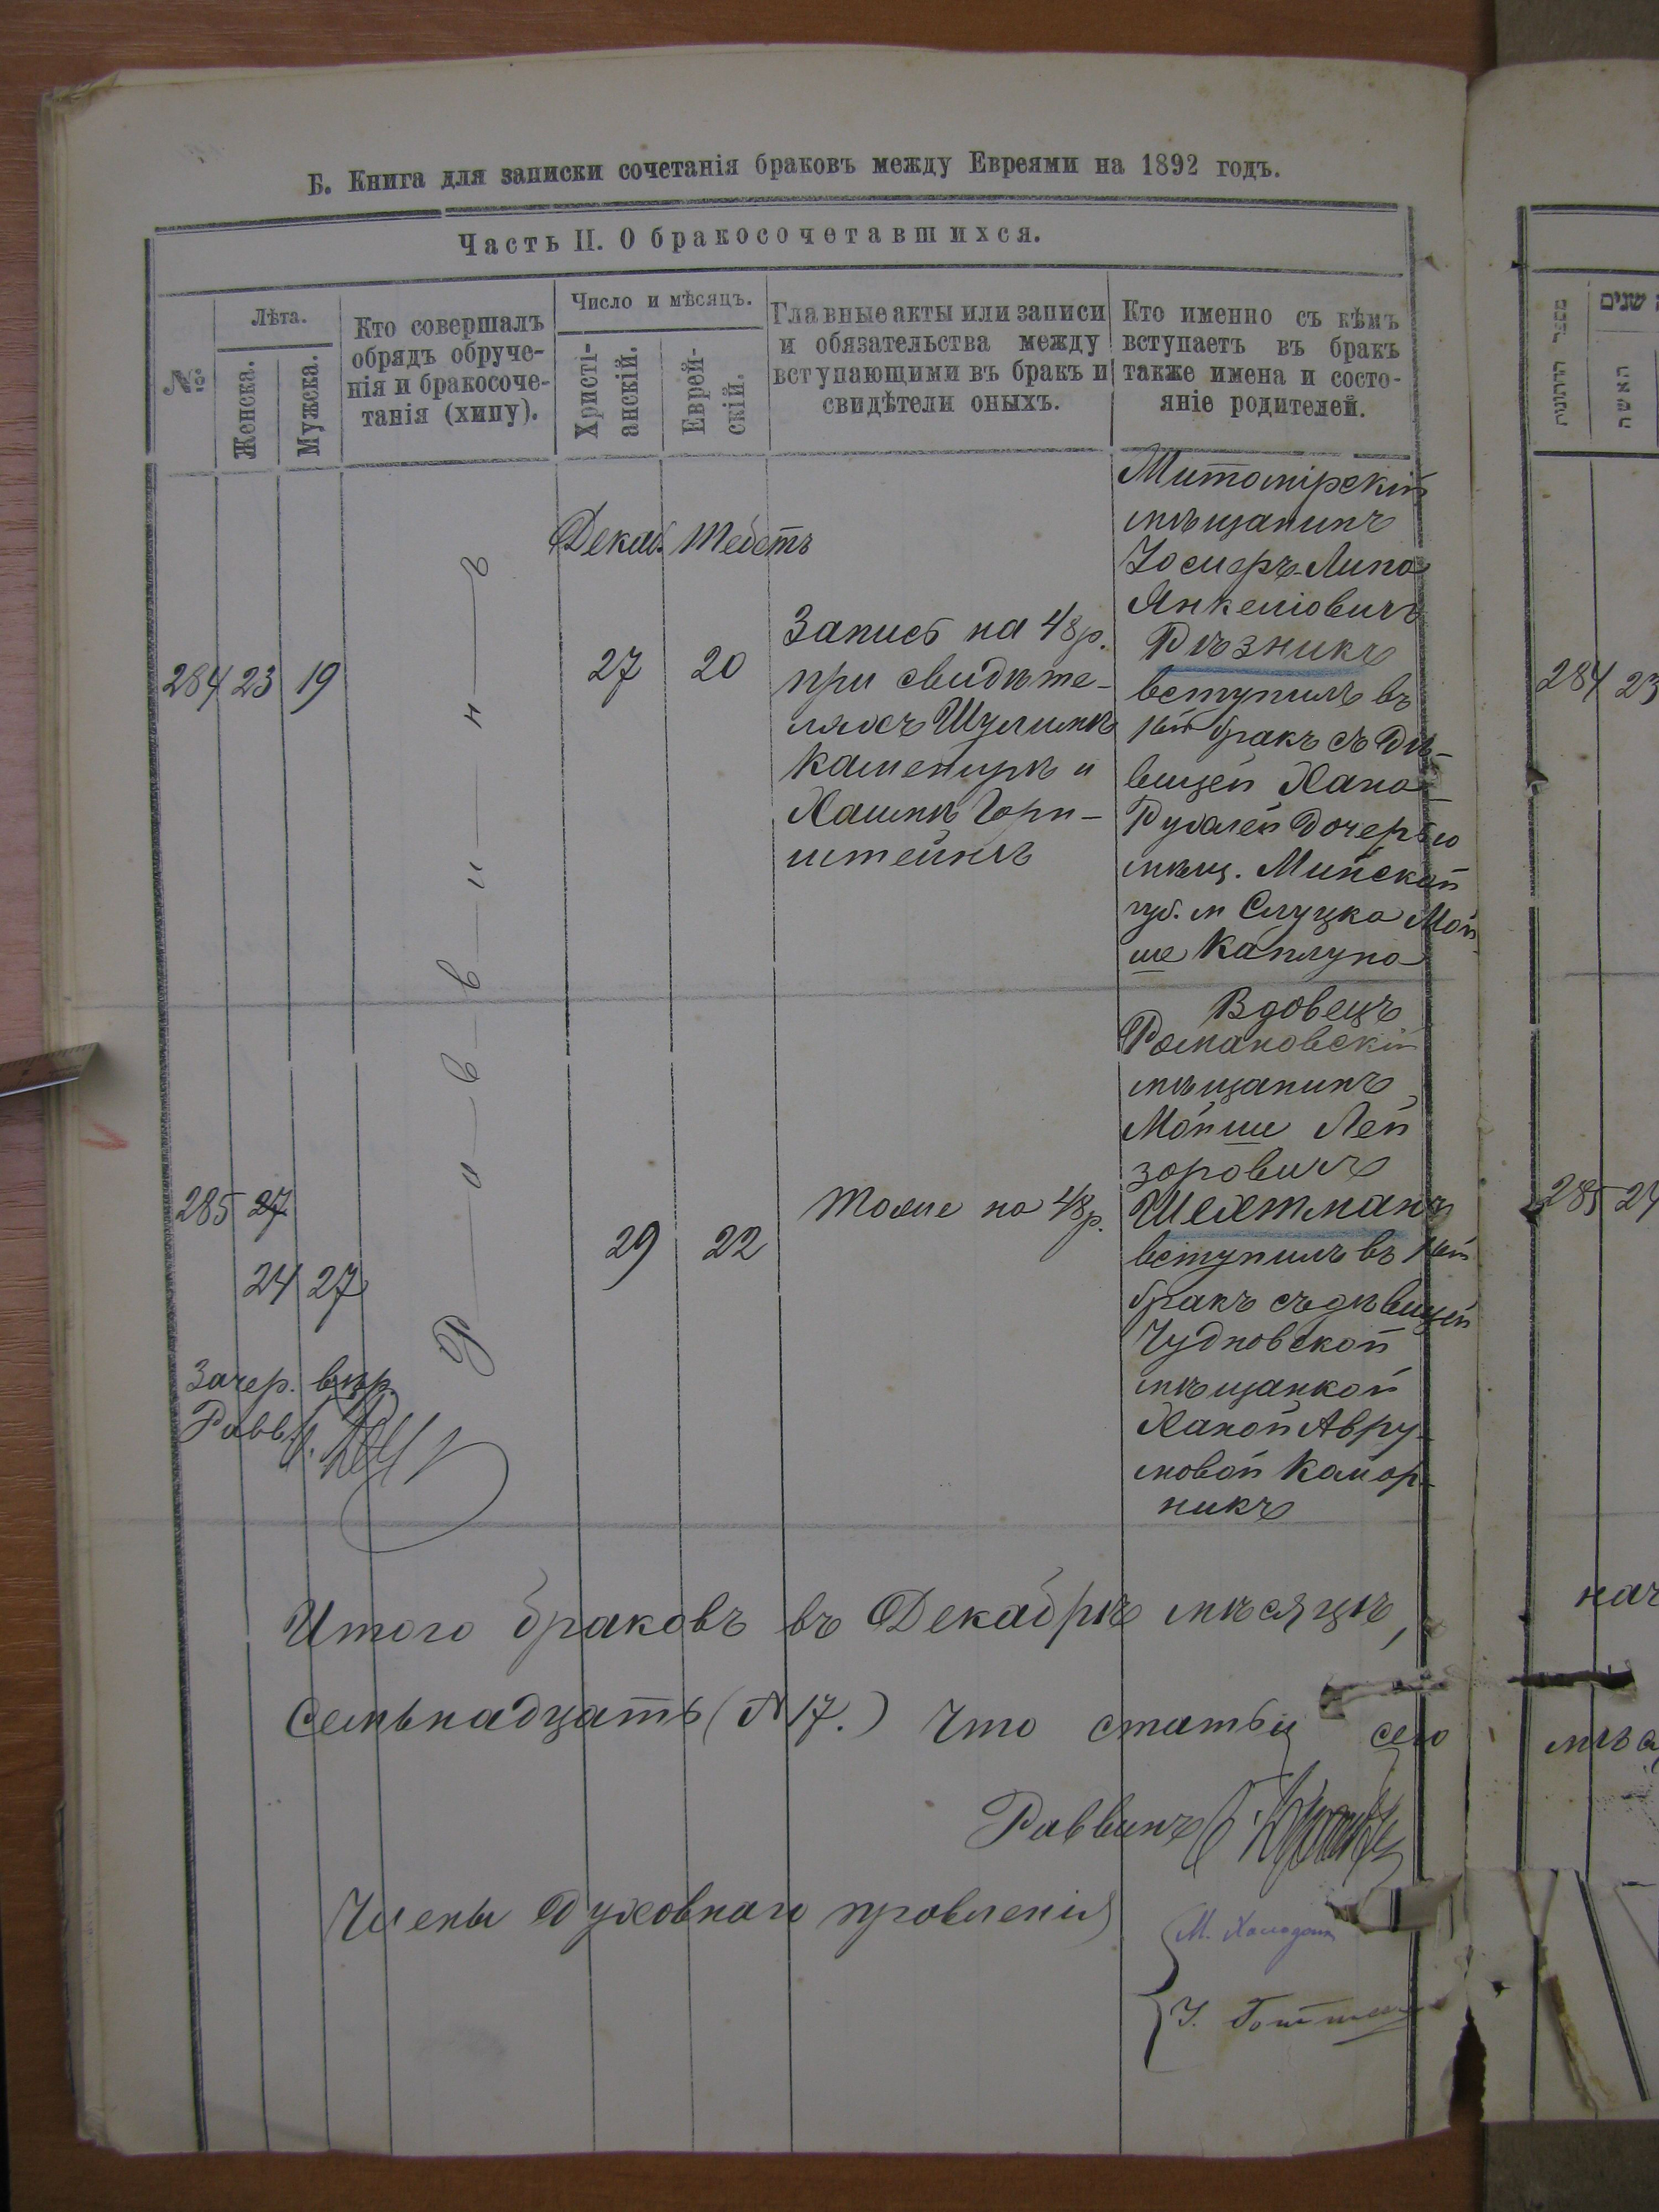 Б. Книга для записки сочетанія браковъ между Евреями на 1892 годъ.
Часть II. О бракосочетавшихся.
№
Лѣта.
Женска.
Мужска.
Кто совершалъ
обрядъ обруче-
нія и бракосоче-
танія (хипу).
Число и мѣсяцъ.
Христі-
анскій.
Еврей-
скій.
Главные акты или записи
и обязательства между
вступающими въ бракъ и
свидѣтели оныхъ.
Кто именно съ кѣмъ
вступаетъ въ бракъ
также имена и состо-
яніе родителей.
Декаб. Тебетъ
284 23 19
27 20
Запись на 48 р.
при свидѣте-
ляхъ Шулимѣ
Каменирѣ и
Хаимѣ Горн-
штейнъ
Житомірскій
мѣщанинъ
Іосифъ-Липа
Янкеліовичъ
Рѣзникъ
вступилъ въ
1ый бракъ съ дѣ-
вицей Хана-
Рухлей дочерью
мѣщ. Минской
губ. м Слуцка Мой
ше Каплуна
Раввинъ
285 27
24 27
29 22
Тоже на 48 р.
Вдовецъ
Романовскій
мѣщанинъ
Мойше Лей
зоровичъ
Шехтманъ
вступилъ въ
бракъ съ дѣвицей
Чудновской
мѣщанкой
Ханой Авру-
мовой Камор-
никъ
Зачер. вѣр.
Равв.
Итого браковъ въ Декабрѣ мѣсяцѣ,
семьнадцать (№ 17.) Что статьи сего
Раввинъ
Члены Духовнаго правленія
מספר החתונות
שנים
האשה
284 23
285 24